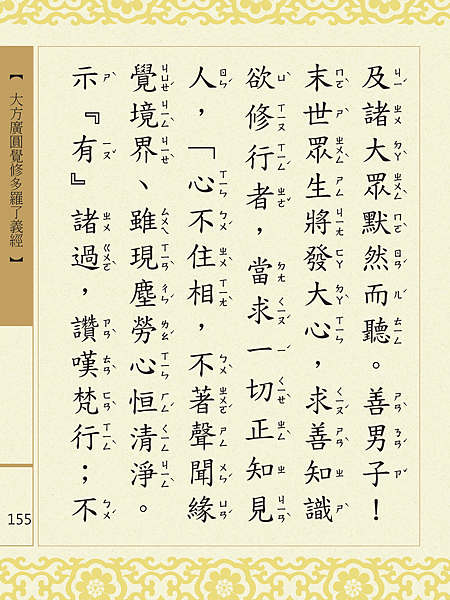 及諸大眾默然而聽。善男子！
末世眾生將發大心，求善知識
欲修行者，當求一切正知見
人，「心不住相，不著聲聞緣
覺境界、雖現塵勞心恒清淨。
示『有』諸過，讚嘆梵行；不
【 大方廣圓覺修多羅了義經 】
155